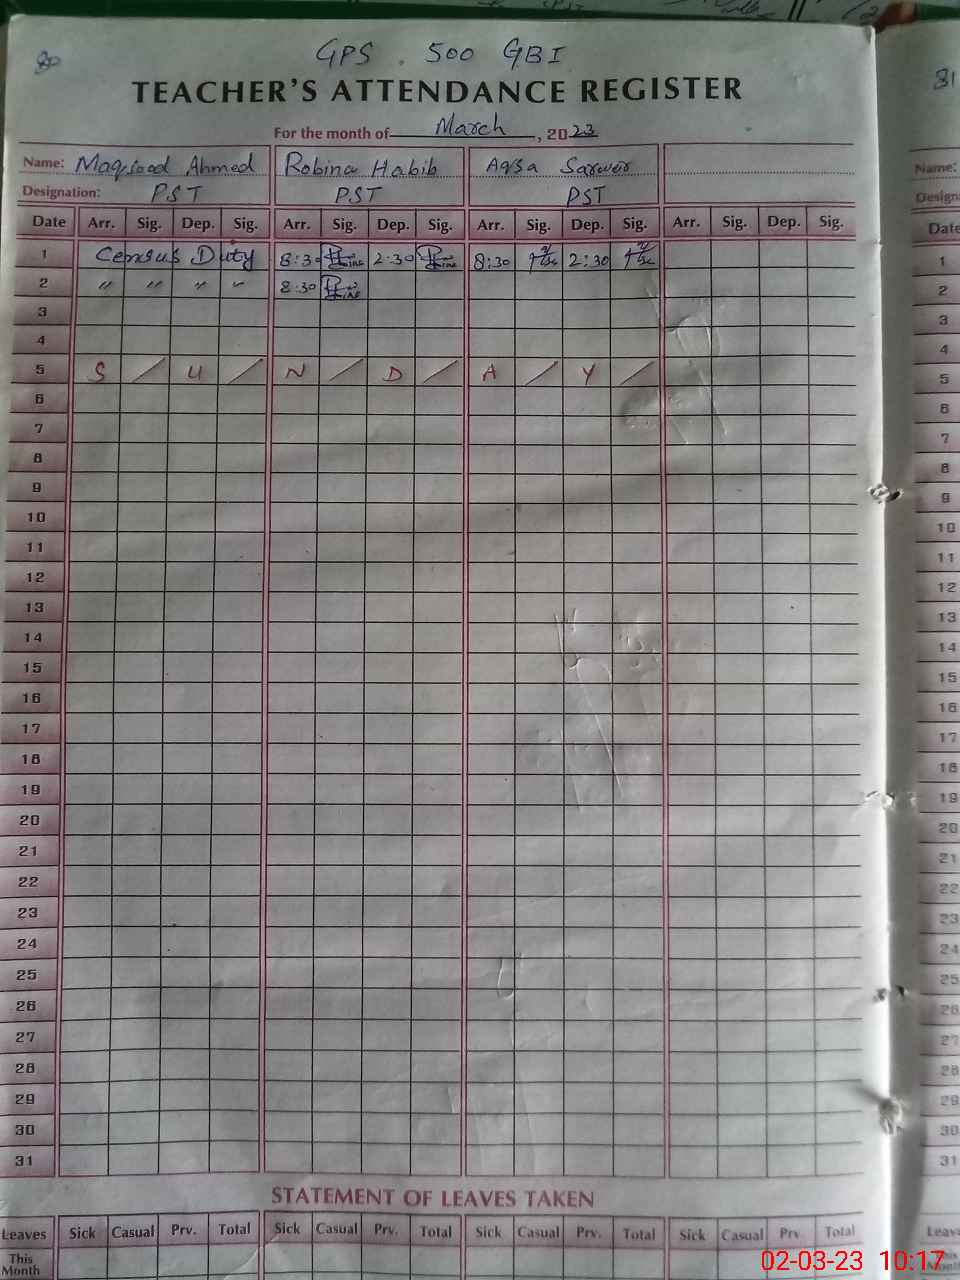 80
GPS . 500 GBI
TEACHER'S ATTENDANCE REGISTER
For the month of March, 2023
Name: Maqsood Ahmed Robina Habib Aqsa Sarwer
Designation: PST PST PST
Date Arr. Sig. Dep. Sig. Arr. Sig. Dep. Sig. Arr. Sig. Dep. Sig. Arr. Sig. Dep. Sig.
1 Census Duty 8:30 2:30 8:30 2:30
2 " " " " 8:30
3
4
5 S / U / N / D / A / Y /
6
7
8
9
10
11
12
13
14
15
16
17
18
19
20
21
22
23
24
25
26
27
28
29
30
31
STATEMENT OF LEAVES TAKEN
Leaves Sick Casual Prv. Total Sick Casual Prv. Total Sick Casual Prv. Total Sick Casual Prv. Total
This Month
81
Name:
Date
1
2
3
4
5
6
7
8
9
10
11
12
13
14
15
16
17
18
19
20
21
22
23
24
25
26
27
28
29
30
31
02-03-23 10:17